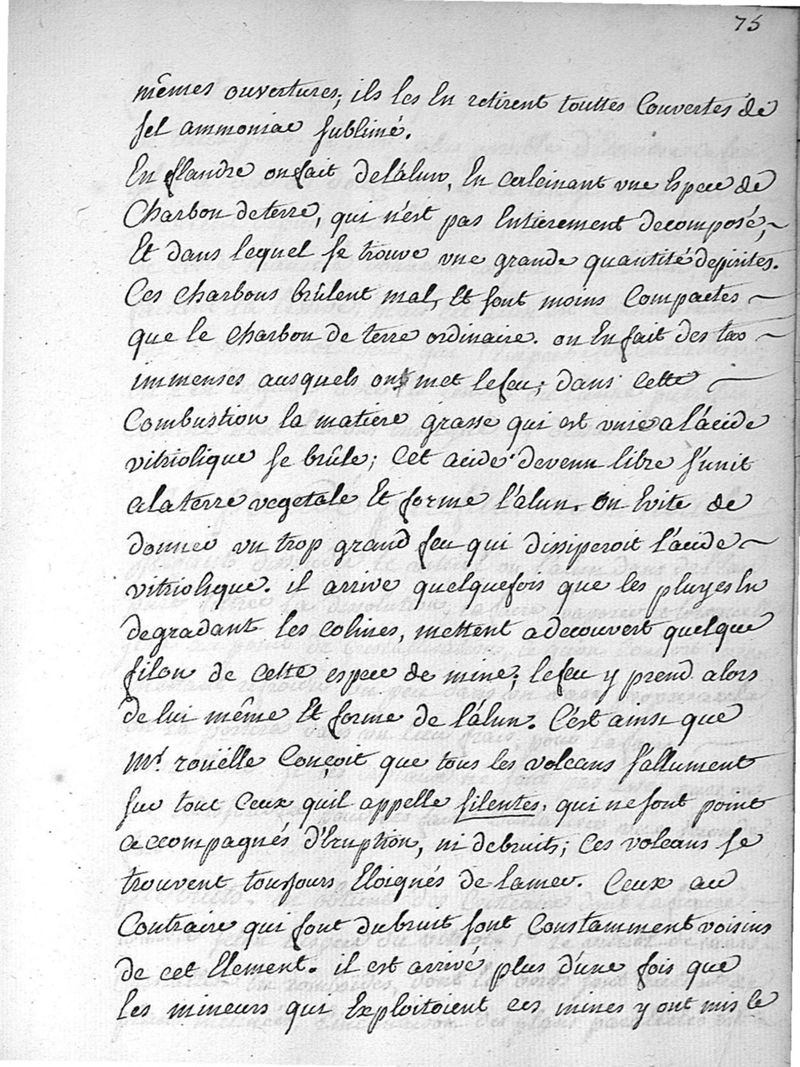 75
mêmes ouvertures; ils les en retirent touttes couvertes de
sel ammoniac sublimé.
En flandre on fait de l'alun, en calcinant vne espece de
Charbon de terre, qui n'est pas entierement decomposé,
Et dans lequel se trouve vne grande quantité de pirites.
Ces charbons brûlent mal, et sont moins compactes
que le charbon de terre ordinaire. on en fait des tas
immenses ausquels on met le feu; dans cette
Combustion la matiere grasse qui est vnie a l'acide
vitriolique se brûle; cet acide devenu libre s'unit
a la terre vegetale et forme l'alun. on evite de
donner vn trop grand feu qui dissiperoit l'acide
vitriolique. il arrive quelquefois que les pluyes en
degradant les colines, mettent a decouvert quelque
filon de cette espece de mine; le feu y prend alors
de lui même et forme de l'alun. C'est ainsi que
Mr. roüelle conçoit que tous les volcans s'allument
sur tout ceux qu'il appelle silentes, qui ne sont point
accompagnés d'eruption, ni de bruits; ces volcans se
trouvent toujours eloignés de la mer. Ceux au
Contraire qui font du bruit sont constamment voisins
de cet element. il est arrivé plus d'une fois que
les mineurs qui exploitoient ces mines y ont mis le